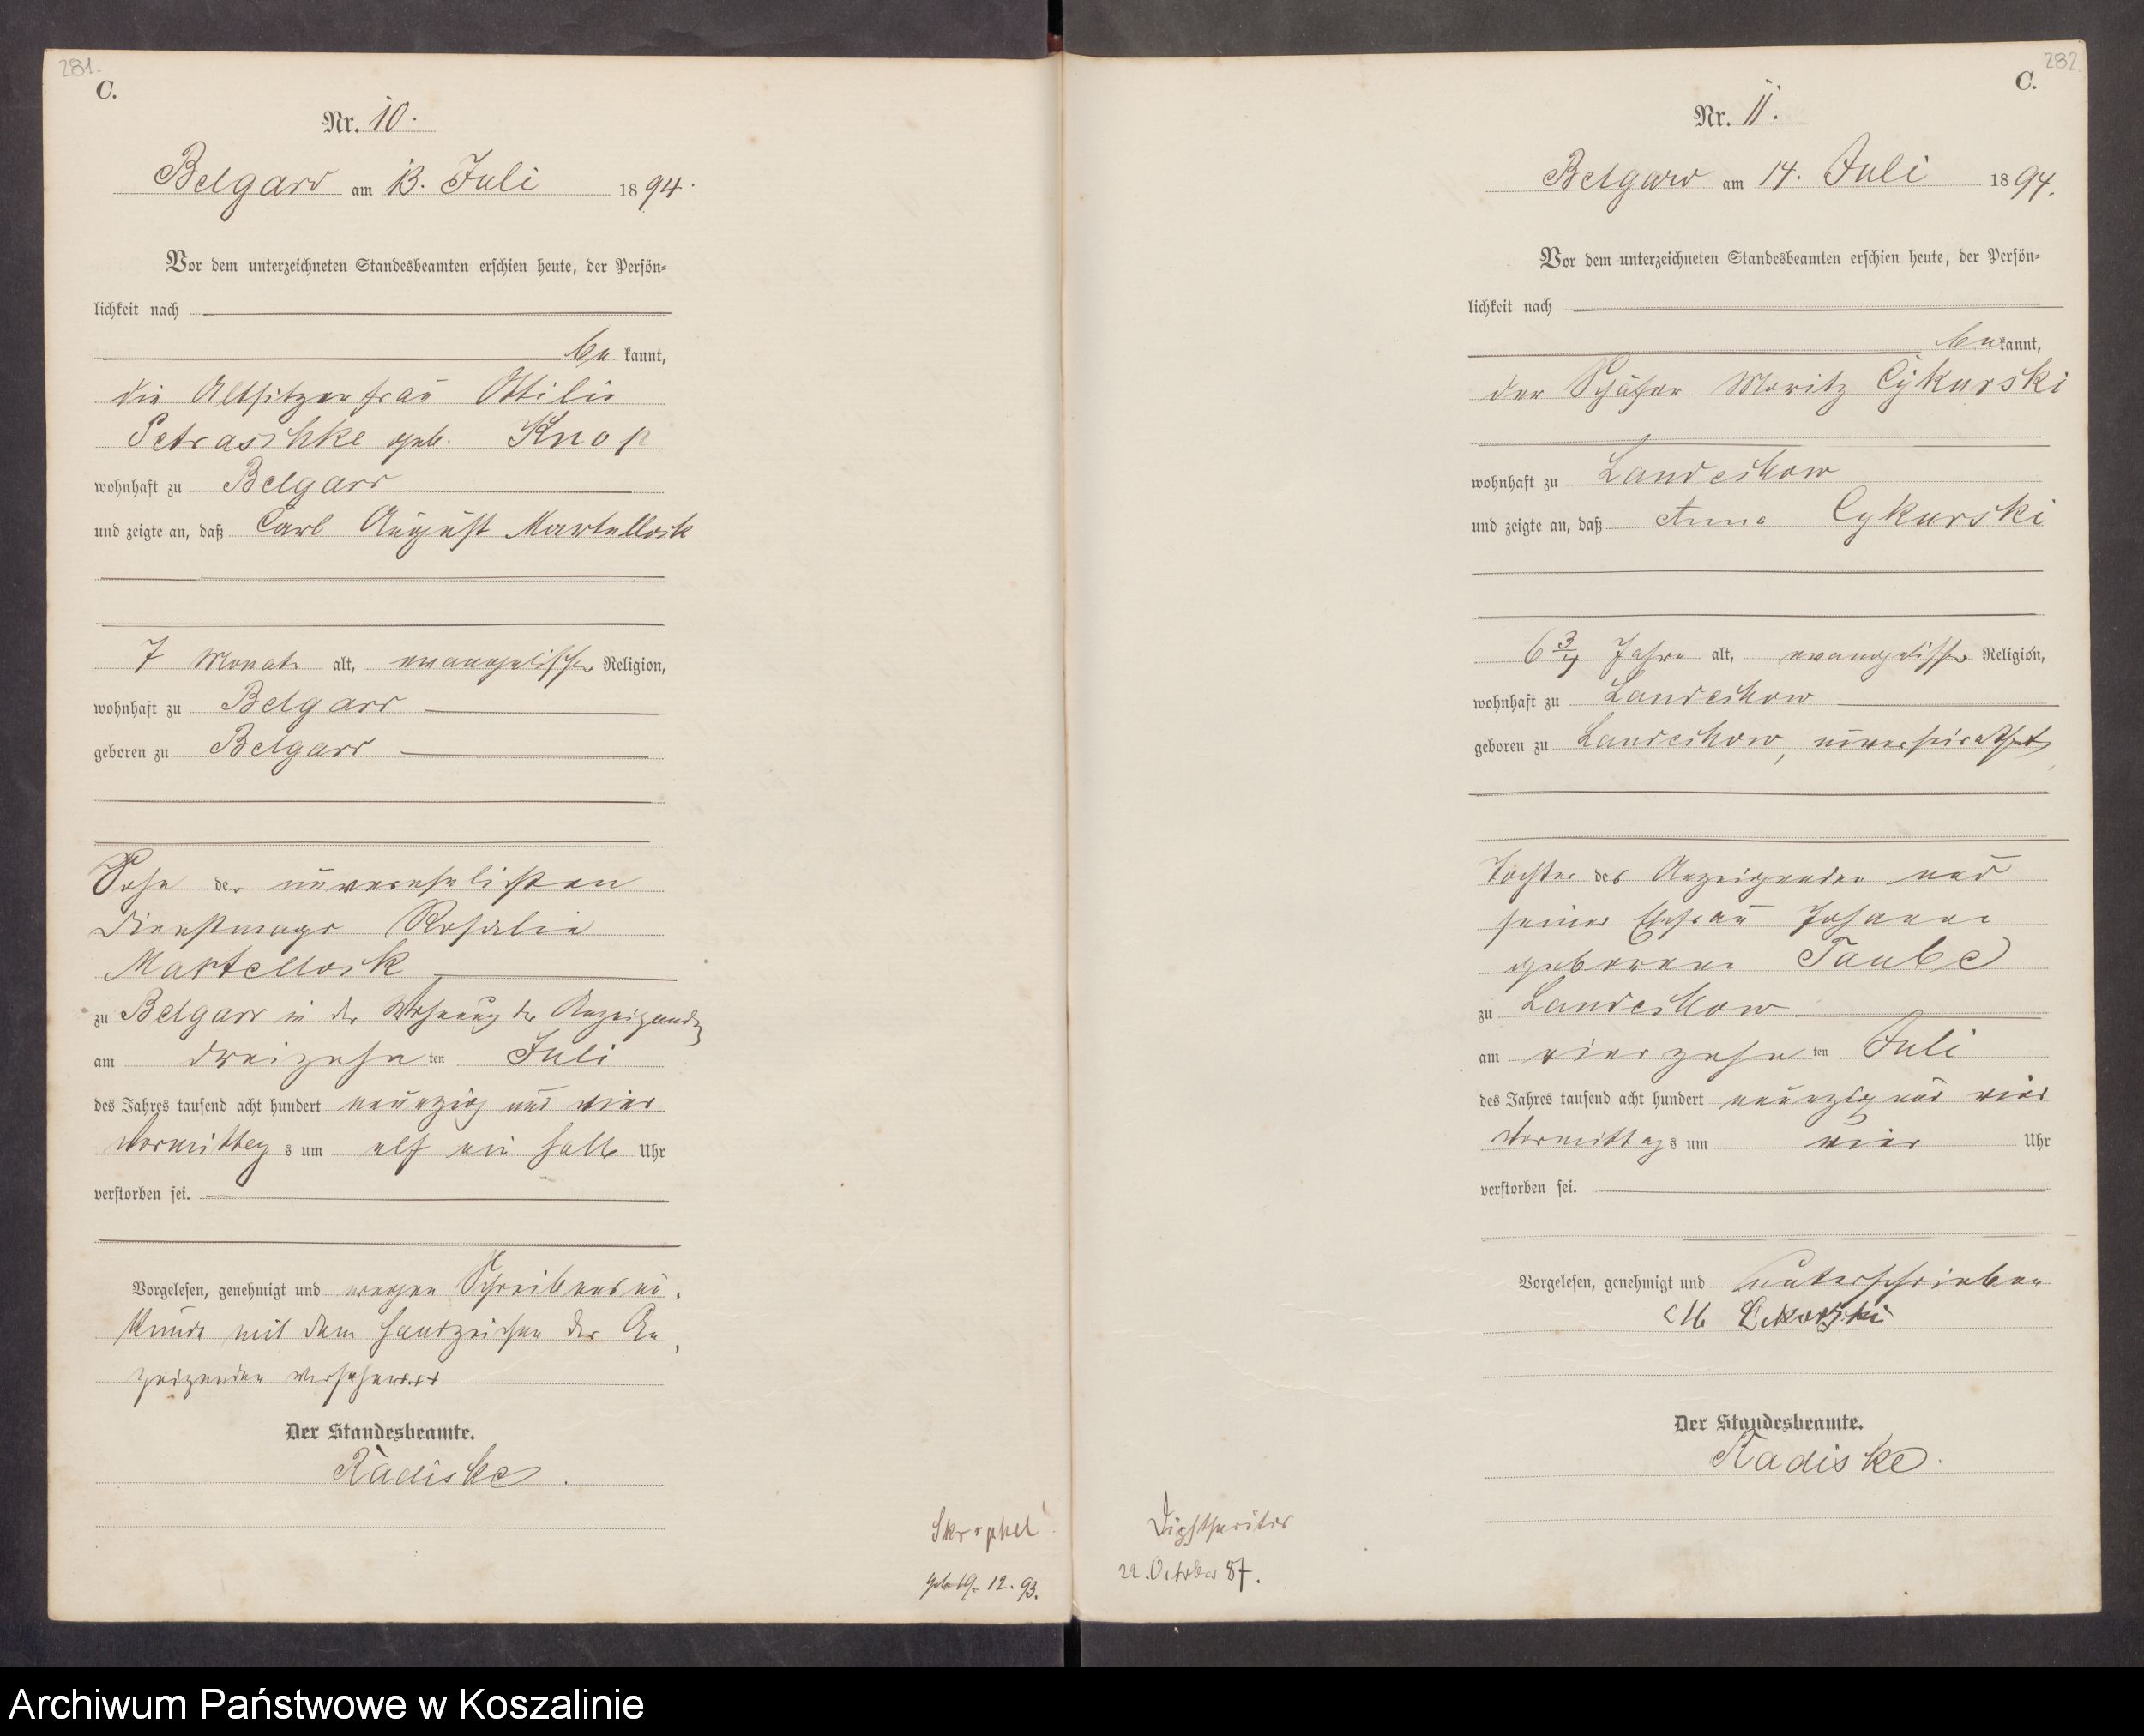 281.
C.
Nr. 10.
Belgard am 13. Juli 1894.
Vor dem unterzeichneten Standesbeamten erschien heute, der Persön-
lichkeit nach
be kannt,
die Altsitzerfrau Ottilie
Petraschke geb. Knop
wohnhaft zu Belgard
und zeigte an, daß Carl August Martellock
7 Monate alt, evangelischer Religion,
wohnhaft zu Belgard
geboren zu Belgard
Sohn der unverehelichten
Dienstmagd Rosalie
Martellock
zu Belgard in der Wohnung der Anzeigenden
am dreizehn ten Juli
des Jahres tausend acht hundert neunzig und vier
Vormittag s um elf ein halb Uhr
verstorben sei.
Vorgelesen, genehmigt und wegen Schreibensun-
kunde mit dem Handzeichen der An-
zeigenden versehen +++
Der Standesbeamte.
Radiske.
Skrophel
geb. 19. 12. 93.
282.
C.
Nr. 11.
Belgard am 14. Juli 1894.
Vor dem unterzeichneten Standesbeamten erschien heute, der Persön-
lichkeit nach
be kannt,
der Schäfer Moritz Cykurski
wohnhaft zu Landechow
und zeigte an, daß Anna Cykurski
6 3/4 Jahre alt, evangelischer Religion,
wohnhaft zu Landechow
geboren zu Landechow, unverheirathet
Tochter des Anzeigenden und
seiner Ehefrau Johanne
geborene Taube
zu Landechow
am vierzehn ten Juli
des Jahres tausend acht hundert neunzig und vier
Vormittag s um vier Uhr
verstorben sei.
Vorgelesen, genehmigt und unterschrieben
M
Der Standesbeamte.
Radiske.
Diphtheritis
22. October 87.
Archiwum Państwowe w Koszalinie